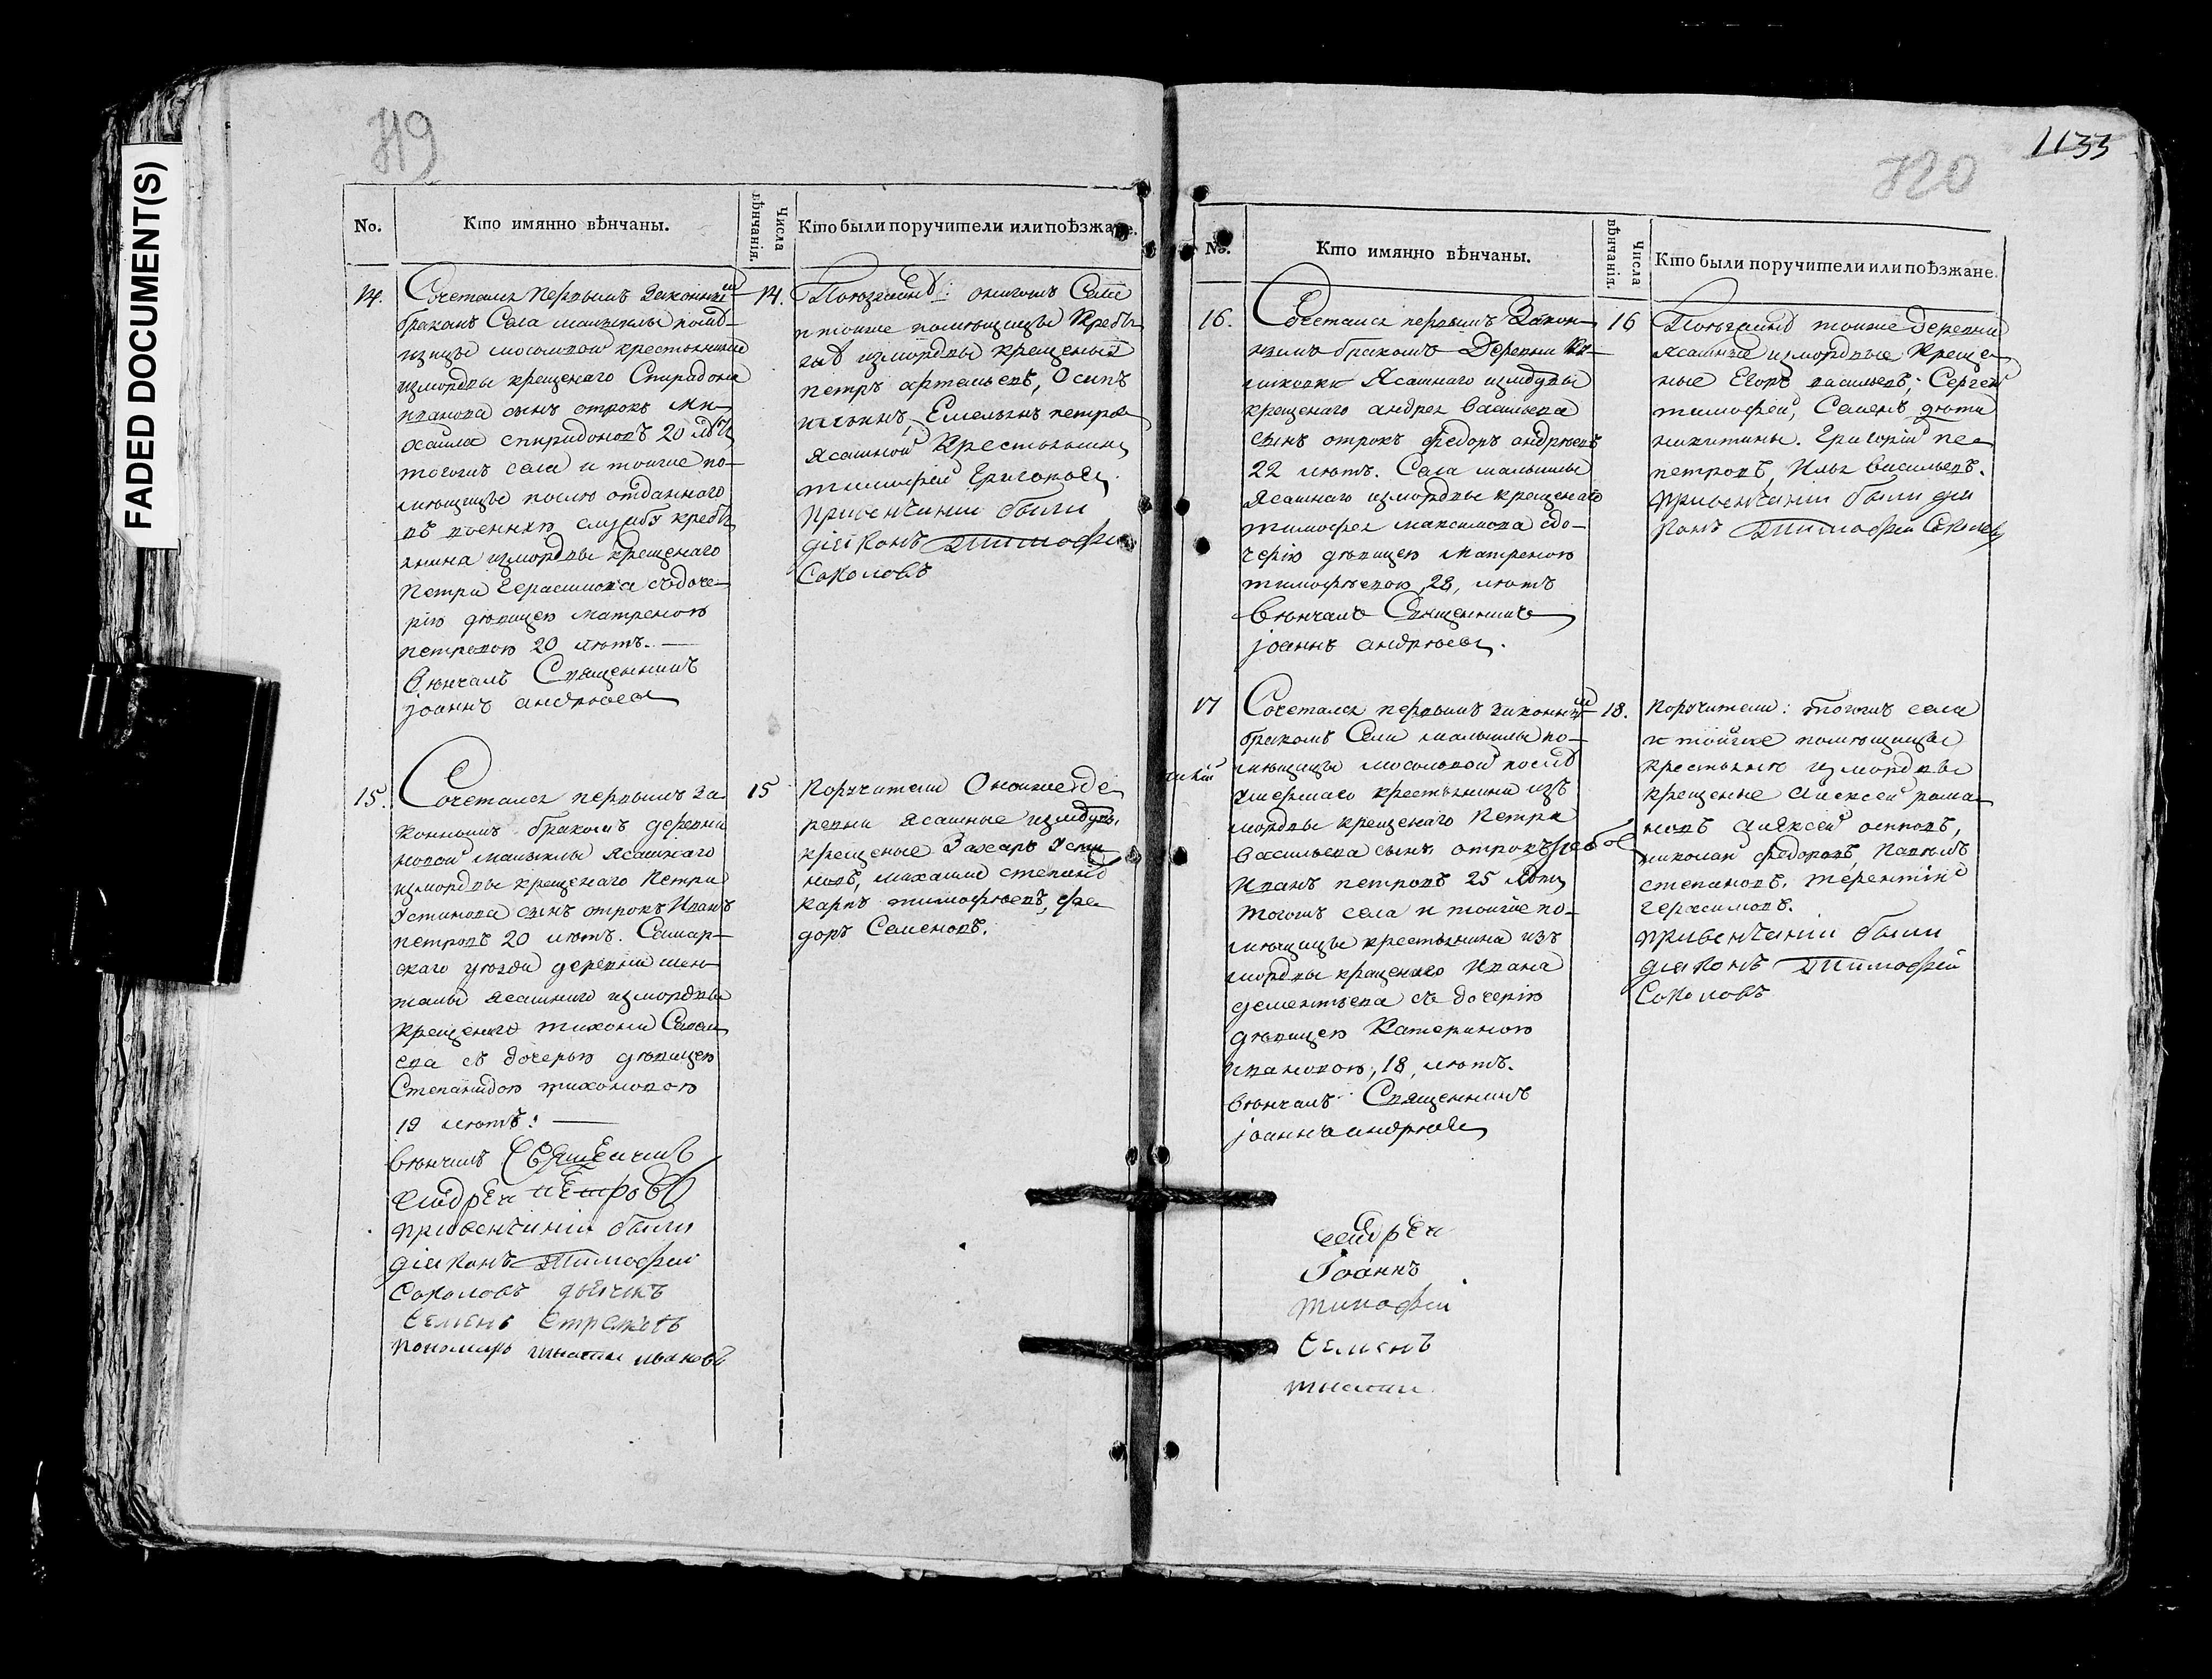 FADED DOCUMENT(S)
719
No.
Кто имянно вѣнчаны.
Числа вѣнчанія.
Кто были поручители или поѣзжане.
14.
Сочетался первымъ законнымъ
бракомъ Села малыклы помѣ-
щицы мосоловой крестьянина
измордвы крещенаго Спиридона
иванова сынъ отрокъ ми-
хайла спиридоновъ 20 лѣтъ
тогожъ села и тоижъ по-
мѣщицы послѣ отданнаго
въ военную службу крестья
янина измордвы крещенаго
Петра Герасимова съдоче-
рію дѣвицею матреною
петровою 20 лѣтъ. —
Вѣнчалъ Священникъ
іоаннъ андрѣевъ
14.
Поѣзжане: онагожъ Села
и тоиже помѣщицы Кресть
измордвы крещеныя
петръ артемьевъ, Осипъ
Емельянъ петровъ
Ясашной Крестьянинъ
тимофей Григорьевъ
привенчании были
діаконъ Тимофей
Соколовъ
15.
Сочетался первымъ за-
коннымъ бракомъ деревни
новой малыклы Ясашнаго
измордвы крещенаго Петра
Устинова сынъ отрокъ Иванъ
петровъ 20 лѣтъ. Самар-
скаго уѣзда деревни шен-
талы ясашнаго измордвы
крещенаго тихона Савель
ева съ дочерью дѣвицею
Степанидою тихоновою
19 лѣтъ: —
вѣнчалъ Священникъ
андреи петровъ
привенчании были
діаконъ Тимофей
Соколовъ дьячекъ
Семенъ Стрежевъ
пономарь игнатеи ивановъ
15
Поручители Оноижеде
ревни Ясашные измордвы
крещеные Захаръ Усти
новъ, михаила степановъ
карпъ тимофѣевъ, фе
доръ Семеновъ.
1133
720
No.
Кто имянно вѣнчаны.
Числа вѣнчанія.
Кто были поручители или поѣзжане.
16.
Сочетался первымъ Закон-
нымъ бракомъ Деревни
Ясашнаго измордвы
крещенаго андрея Васильева
сынъ отрокъ федоръ андрѣевъ
22 лѣтъ. Села малыклы
Ясашнаго измордвы крещенаго
тимофея максимова сдо-
черію дѣвицею Матреною
тимофѣевою, 28, лѣтъ
Вѣнчалъ Священникъ
іоаннъ андрѣевъ.
16
Поѣзжане тоиже деревни
ясашные измордвы Креще
ные Егоръ васильевъ; Сергей
тимофей, Семенъ дети
никитины. Григорій
петровъ, Илья Васильевъ.
привенчании были діа
конъ Тимофей Соколовъ
17
Сочетался первымъ законнымъ
бракомъ Села малыклы по-
мѣщицы мосоловой послѣ
умершаго крестьянина изъ
мордвы крещенаго Петра
Васильева сынъ отрокъ
Иванъ петровъ 25 лѣтъ
тогожъ села и тоижъ по-
мѣщицы крестьянина изъ
мордвы крещенаго Ивана
дементьева съ дочерію
дѣвицею Катериною
ивановою, 18, лѣтъ.
вѣнчалъ Священникъ
іоаннъ андрѣевъ
18.
Поручители: тогожъ села
и тойже помѣщицы
крестьяня измордвы
крещеные Алексей рома
новъ Алексей осиповъ,
николаи федоровъ, Павелъ
степановъ. терентіи
герасимовъ.
привенчании были
діаконъ Тимофей
Соколовъ
андреи
Іоаннъ
тимофей
Семенъ